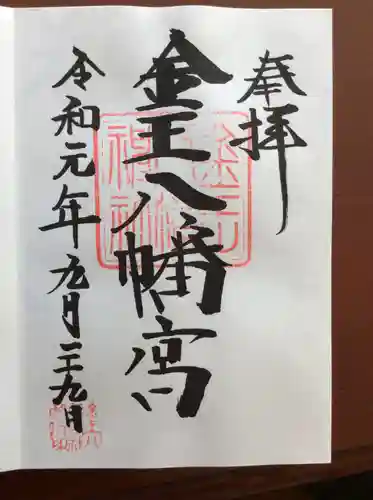 奉拝
金王八幡宮
令和元年九月二十九日